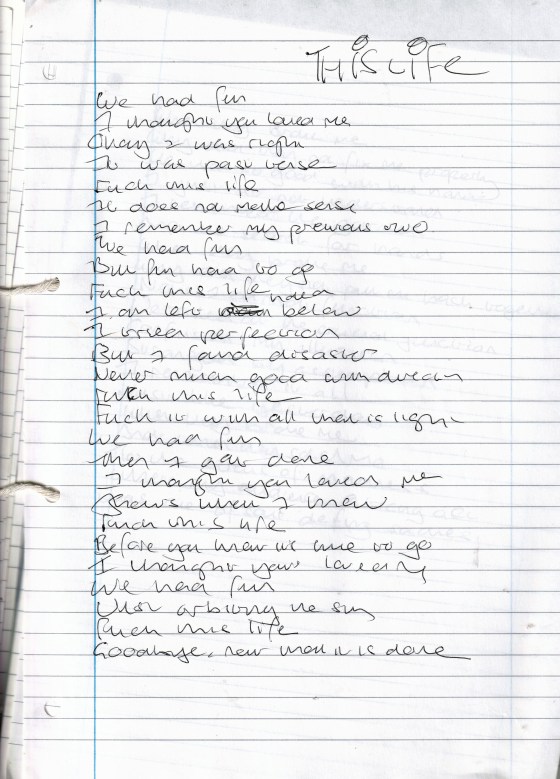 THiS LiFE
We had fun
I thought you loved me
Okay I was right
It was past verse
Fuck this life
It does not make sense
I remember my previous two
We had fun
But fun had to go
Fuck this life
I am left naked below
I tried perfection
But I found disaster
Never much good
Fuck this life
Fuck it with all that is light
We had fun
Then I got done
I thought you loved me
Shows when I know
Fuck this life
Before you know its time to go
I thought your
We had fun
the sun
Fuck this life
Goodbye, now that it is done